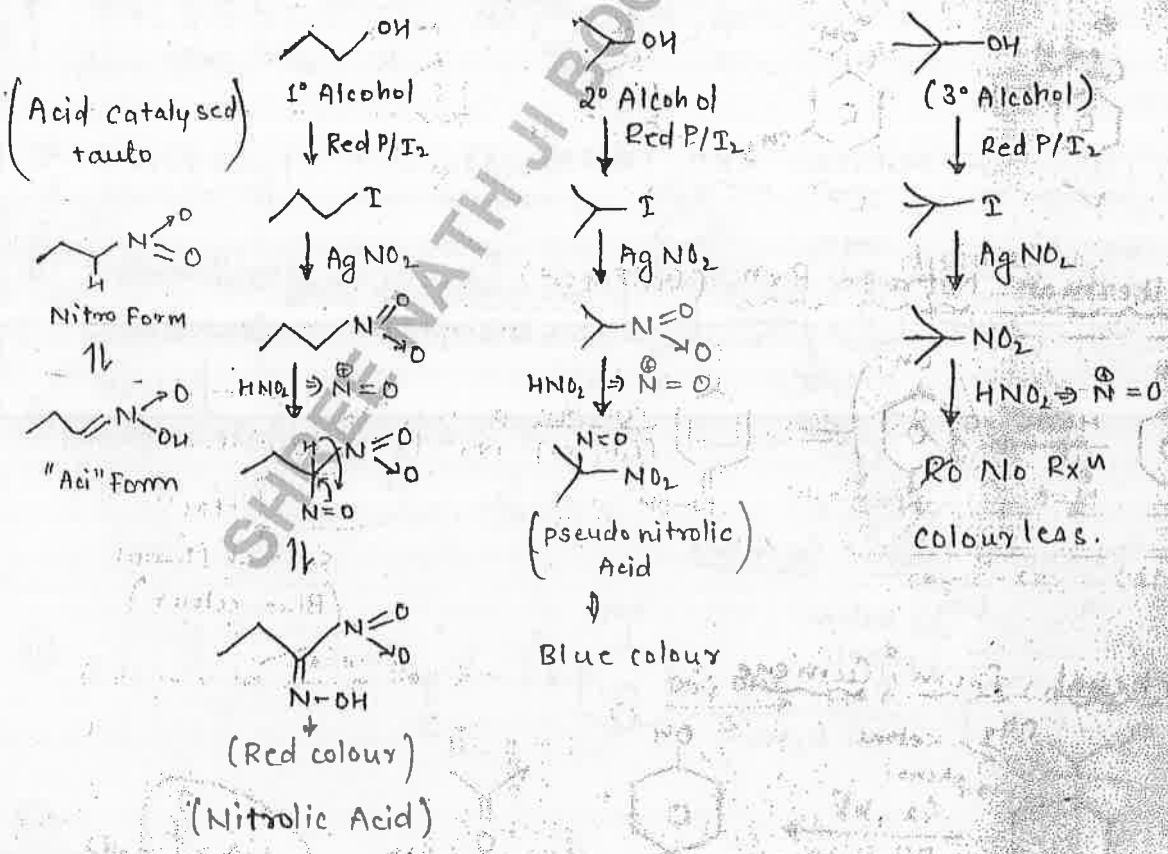 (Acid catalysed
tauto)
N
O
O
H
Nitro Form
⇌
N
O
OH
"Aci" Form
OH
1° Alcohol
↓ Red P/I₂
I
↓ AgNO₂
N
O
O
HNO₂ ⇒ N⊕=O
H
N
O
O
N=O
⇌
N
O
O
N-OH
(Red colour)
(Nitrolic Acid)
OH
2° Alcohol
↓ Red P/I₂
I
↓ AgNO₂
N
O
O
HNO₂ ⇒ N⊕=O
N=O
NO₂
(pseudo nitrolic
Acid)
⇓
Blue colour
OH
(3° Alcohol)
Red P/I₂
I
↓ AgNO₂
NO₂
↓ HNO₂ ⇒ N⊕=O
Ro No Rxⁿ
colourless.
SHREE NATH JI BOO